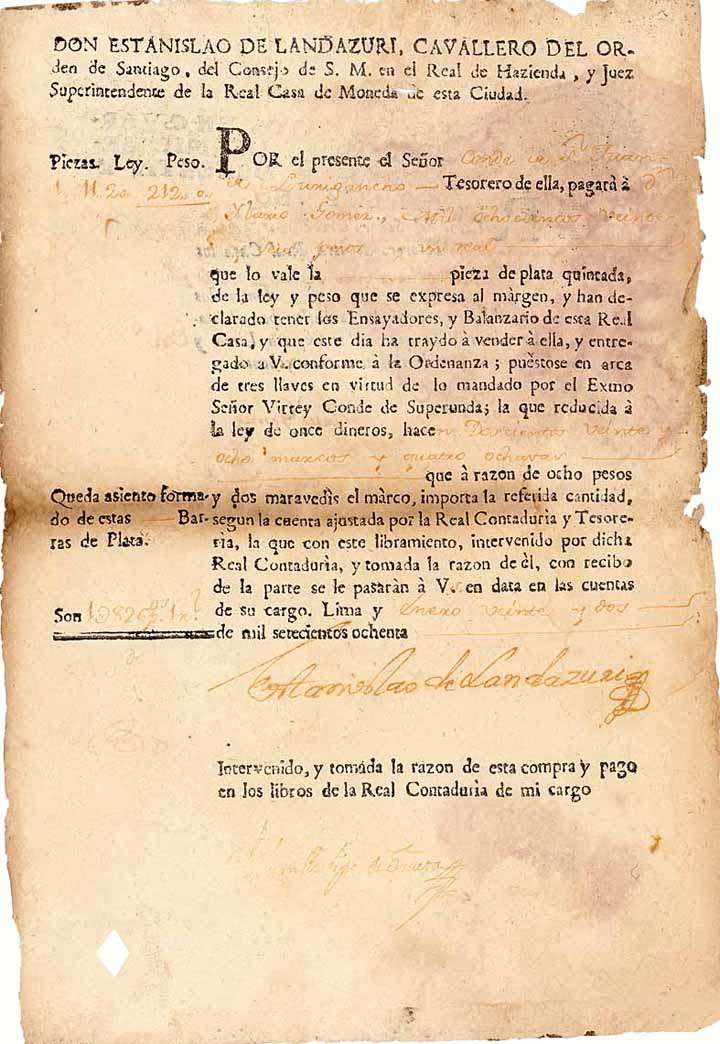 DON ESTANISLAO DE LANDAZURI, CAVALLERO DEL OR-
den de Santiago, del Consejo de S. M. en el Real de Hazienda, y Juez
Superintendente de la Real Casa de Moneda de esta Ciudad.
Piezas. Ley. Peso. POR el presente el Señor Conde de Sn Juan
1 11.20 212 de Lurigancho Tesorero de ella, pagarà à Dn
Ylario Gomez, mil ochocientos veinte
y seis pesos un real
que lo vale la pieza de plata quintada,
de la ley y peso que se expresa al màrgen, y han de-
clarado tener los Ensayadores, y Balanzario de esta Real
Casa, y que este dia ha traydo à vender à ella, y entre-
gado a V. conforme à la Ordenanza; puèstose en arca
de tres llaves en virtud de lo mandado por el Exmo
Señor Virrey Conde de Superunda; la que reducida à
la ley de once dineros, hacen Doscientos veinte y
ocho marcos y quatro ochavas
que à razon de ocho pesos
Queda asiento forma- y dos maravedìs el màrco, importa la referida cantidad,
do de estas Bar- segun la cuenta ajustada por la Real Contadurìa y Tesore-
ras de Plata. rìa, la que con este libramiento, intervenido por dicha
Real Contadurìa, y tomada la razon de èl, con recibo
de la parte se le pasaràn à V. en data en las cuentas
Son 1826 ps. 1 rl de su cargo. Lima y enero veinte y dos
de mil setecientos ochenta
Estanislao de Landazuri
Intervenido, y tomàda la razon de esta compra y pago
en los libros de la Real Contadurìa de mi cargo